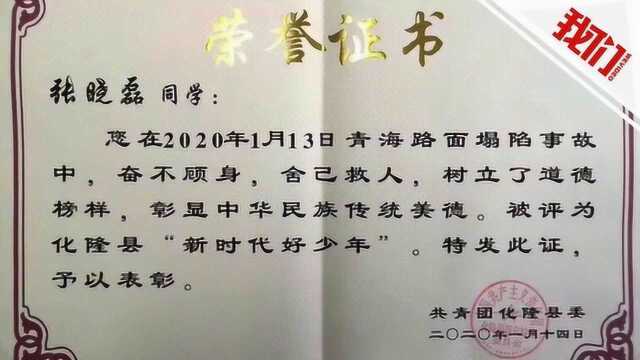 荣誉证书
我们
REVIDEO
张晓磊 同学：
您在2020年1月13日青海路面塌陷事故
中，奋不顾身，舍己救人，树立了道德
榜样，彰显中华民族传统美德。被评为
化隆县“新时代好少年”。特发此证，
予以表彰。
共青团化隆县委
二〇二〇年一月十四日